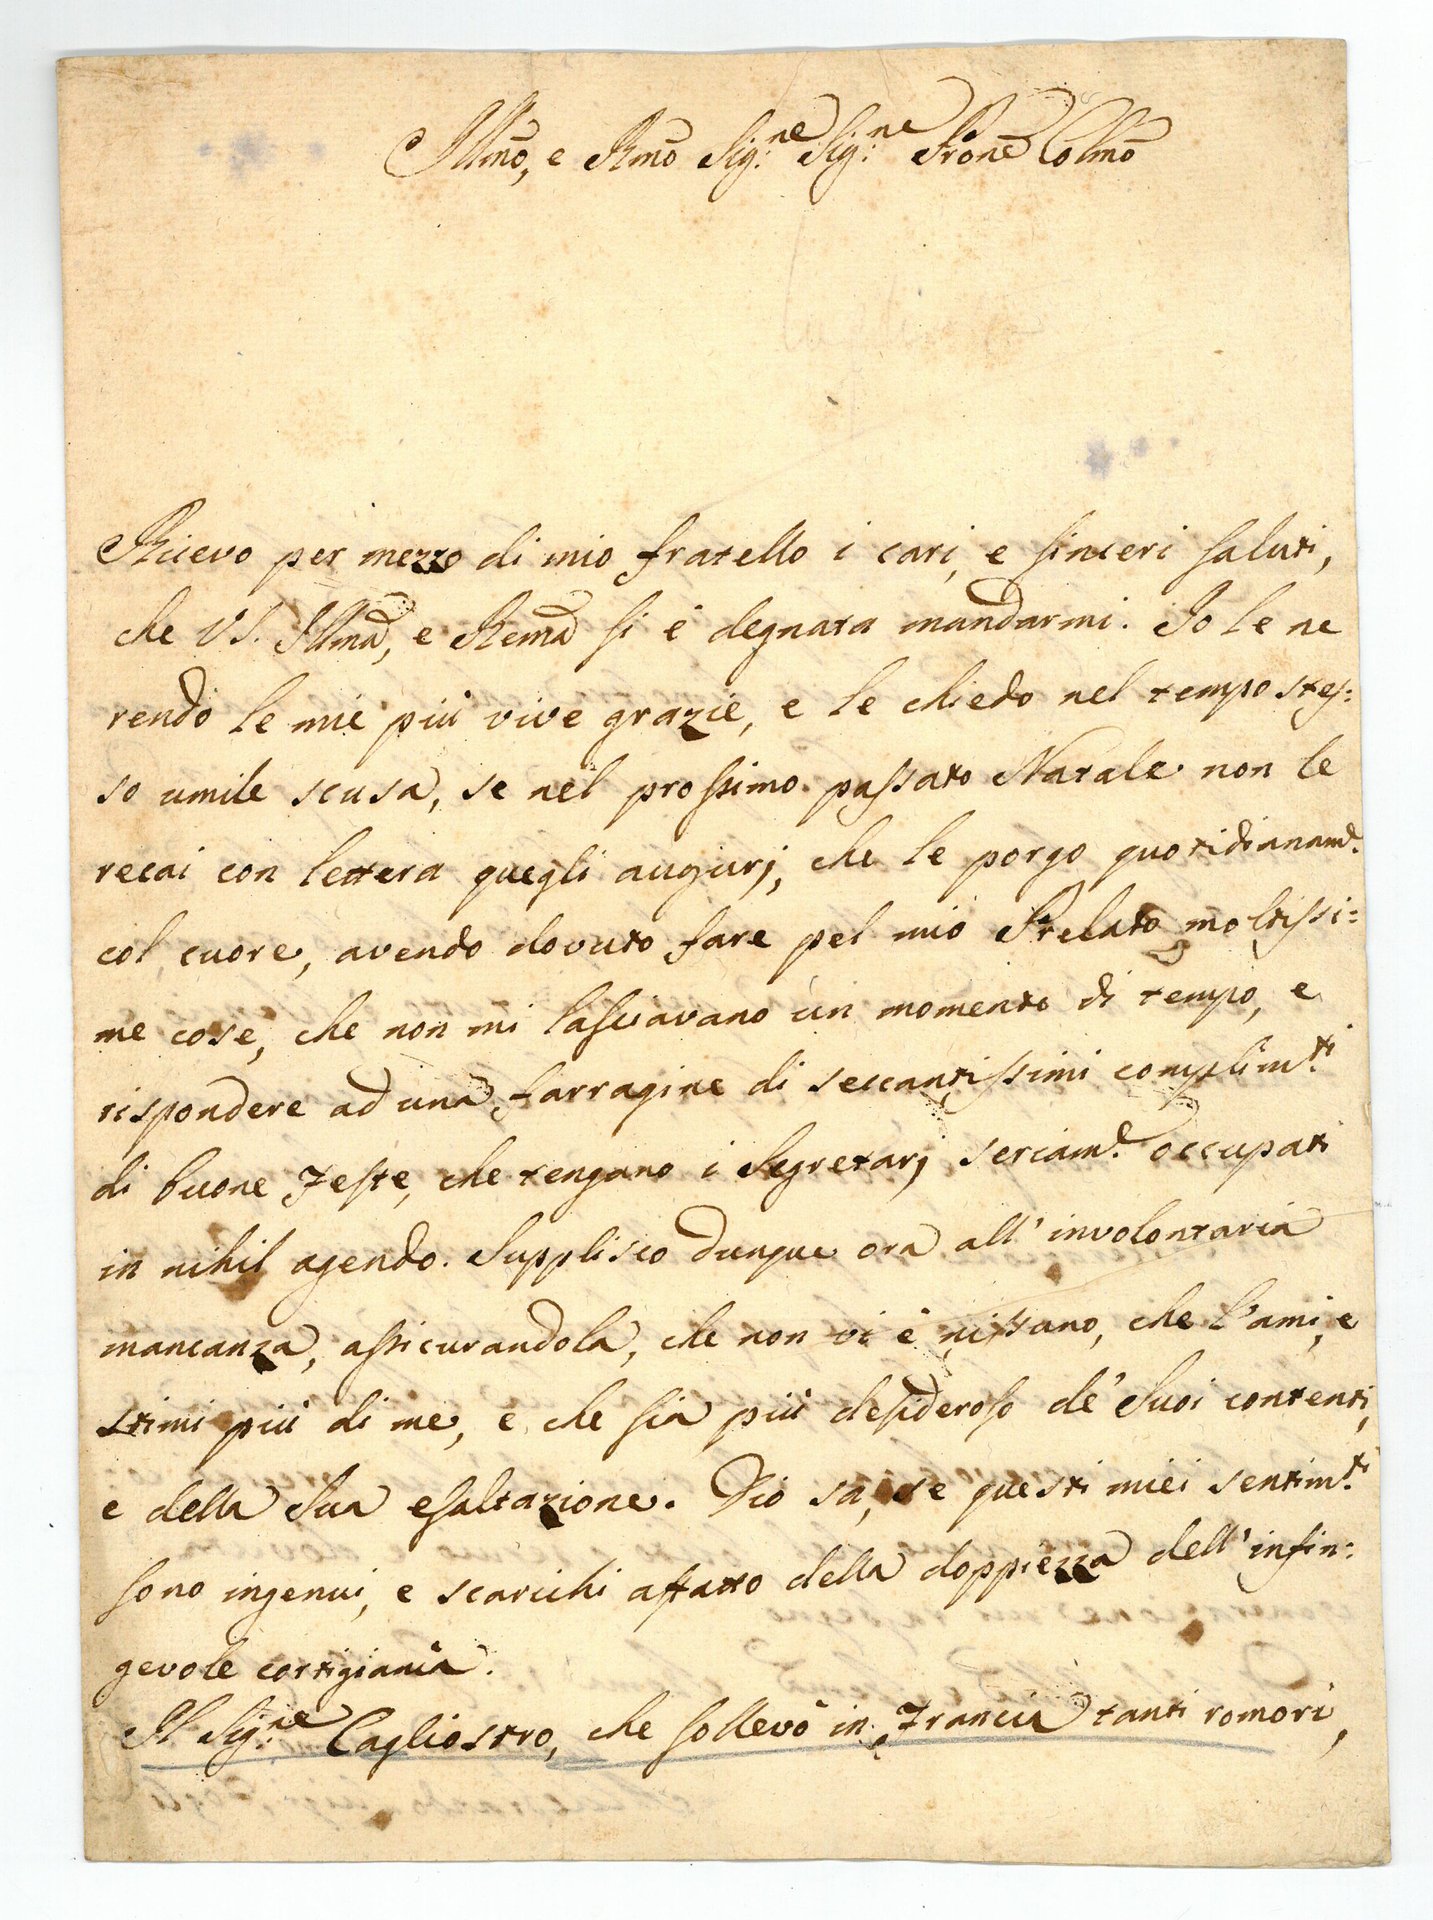 Illmo, e Rmo Sig:ne Sig:ne Prone Colmo
Ricevo per mezzo di mio fratello i cari, e sinceri saluti,
che VS. Illma, e Rema si è degnata mandarmi. Io le ne
rendo le mie più vive grazie, e le chiedo nel tempo stes:
so umile scusa, se nel prossimo passato Natale non le
recai con lettera quegli augurj, che le porgo quotidianamte
col cuore, avendo dovuto fare pel mio Prelato moltissi:
me cose, che non mi lasciavano un momento di tempo, e
rispondere ad una farragine di seccantissimi complimti
di buone Feste, che tengano i Segretarj seriamte occupati
in nihil agendo. Supplisco dunque ora all' involontaria
mancanza, assicurandola, che non vi è nissuno, che l'ami, e
stimi più di me, e che sia più desideroso de' Suoi contenti,
e della Sua esaltazione. Dio sa, se questi miei sentimti
sono ingenui, e scarichi affatto della doppiezza dell' infin:
gevole cortigianìa.
Il Sig:ne Cagliostro, che sollevò in Francia tanti romori,